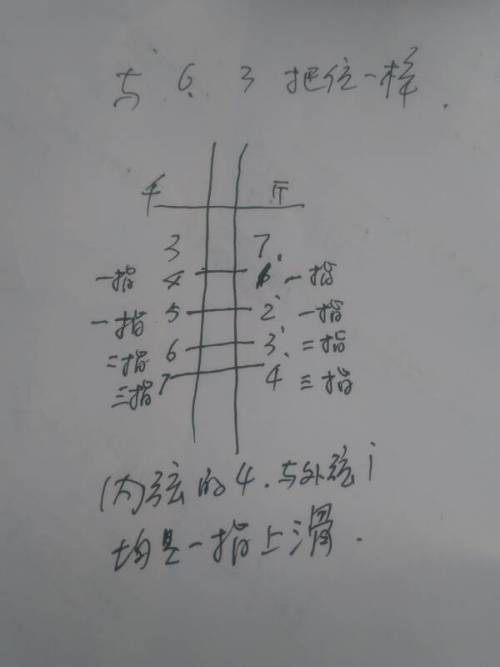 与 6. 3 把位一样.
千 斤
3 7.
一指 4 1 一指
一指 5 2 一指
二指 6 3 二指
三指 7 4 三指
内弦的4.与外弦i
均是一指上滑.